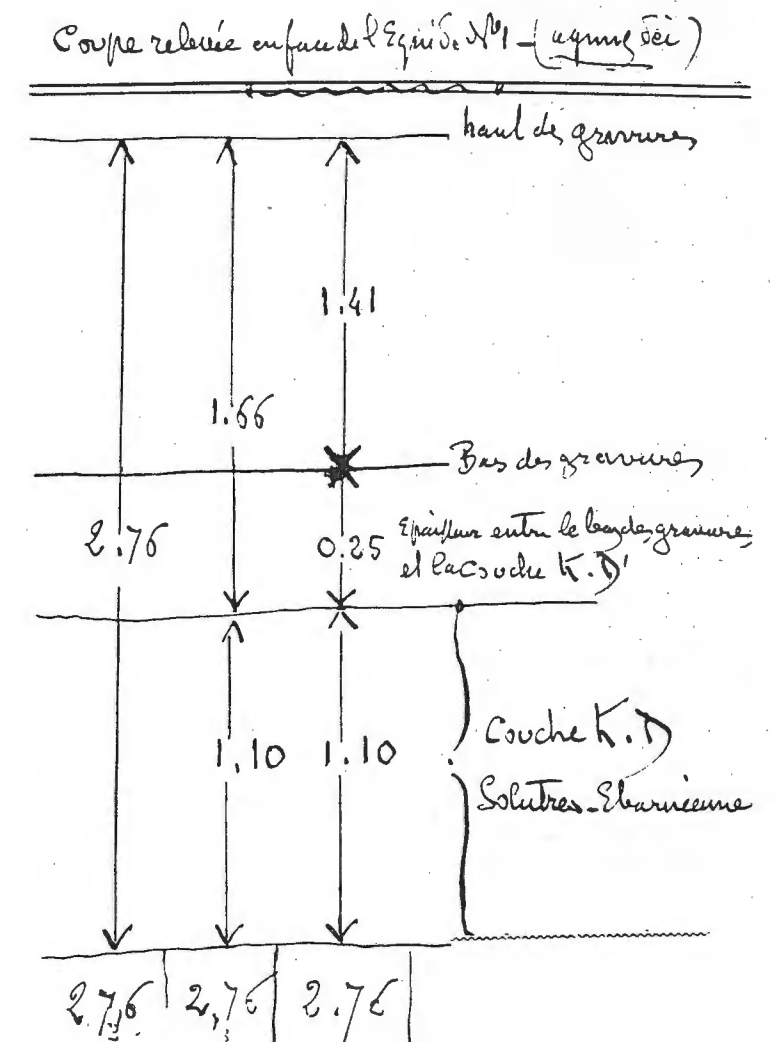 Coupe relevée en face de l'Equidé N°1 - (agnus Dei)
haut des gravures
1.41
1.66
Bas des gravures
2.76
0.25
Epaisseur entre le bas des gravures
et la couche K.D'
1.10
1.10
Couche K.D
Solutréo-Eburnéenne
2.76
2,76
2.76